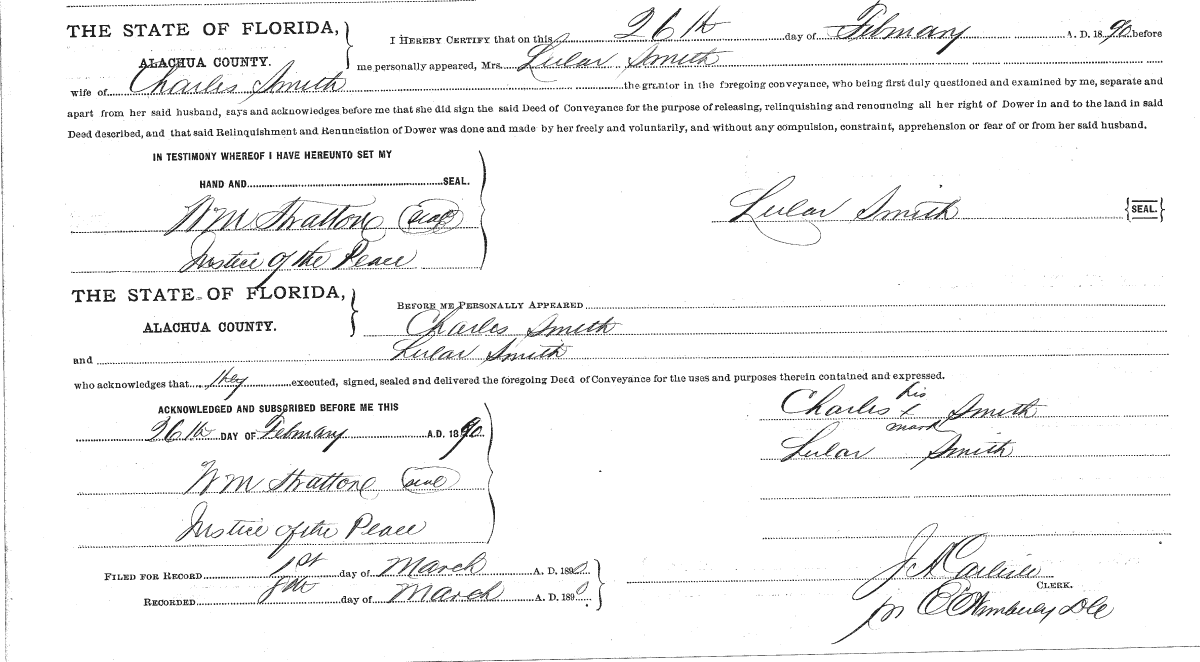 THE STATE OF FLORIDA,
ALACHUA COUNTY.
I HEREBY CERTIFY that on this 26th day of February A. D. 1890, before
me personally appeared, Mrs. Lular Smith
wife of Charles Smith the grantor in the foregoing conveyance, who being first duly questioned and examined by me, separate and
apart from her said husband, says and acknowledges before me that she did sign the said Deed of Conveyance for the purpose of releasing, relinquishing and renouncing all her right of Dower in and to the land in said
Deed described, and that said Relinquishment and Renunciation of Dower was done and made by her freely and voluntarily, and without any compulsion, constraint, apprehension or fear of or from her said husband.
IN TESTIMONY WHEREOF I HAVE HEREUNTO SET MY
HAND AND SEAL.
Wm Strattone seal
Lular Smith {SEAL.}
Justice of the Peace
THE STATE OF FLORIDA,
ALACHUA COUNTY.
BEFORE ME PERSONALLY APPEARED
Charles Smith
and Lular Smith
who acknowledges that they executed, signed, sealed and delivered the foregoing Deed of Conveyance for the uses and purposes therein contained and expressed.
ACKNOWLEDGED AND SUBSCRIBED BEFORE ME THIS
26th DAY OF February A.D. 1890
Wm Strattone seal
Justice of the Peace
his
Charles x Smith
mark
Lular Smith
FILED FOR RECORD 1st day of March A. D. 1890
RECORDED 8th day of March A.D. 1890
CLERK.